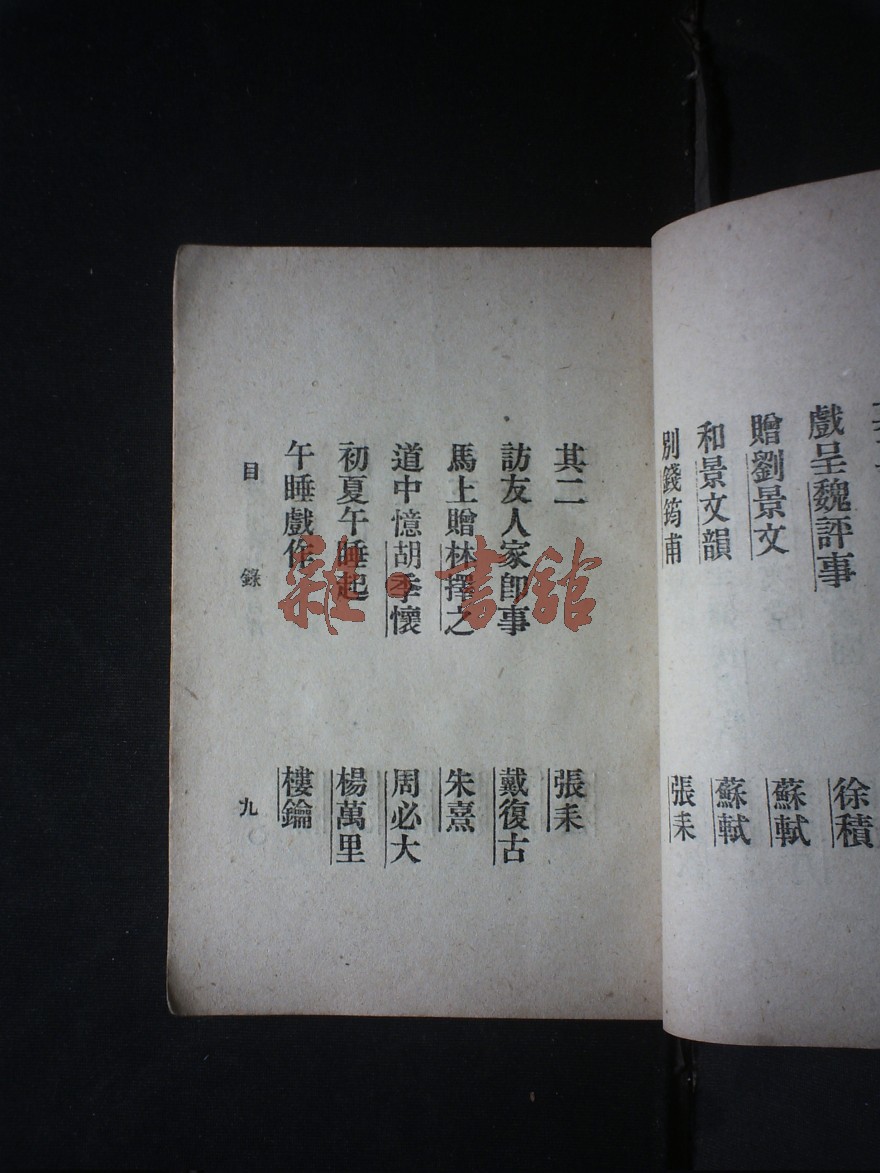 戲呈魏評事 徐積
贈劉景文 蘇軾
和景文韻 蘇軾
別錢筠甫 張耒
其二 張耒
訪友人家卽事 戴復古
馬上贈林擇之 朱熹
道中憶胡季懷 周必大
初夏午睡起 楊萬里
午睡戲作 樓鑰
目錄 九
雜·書館